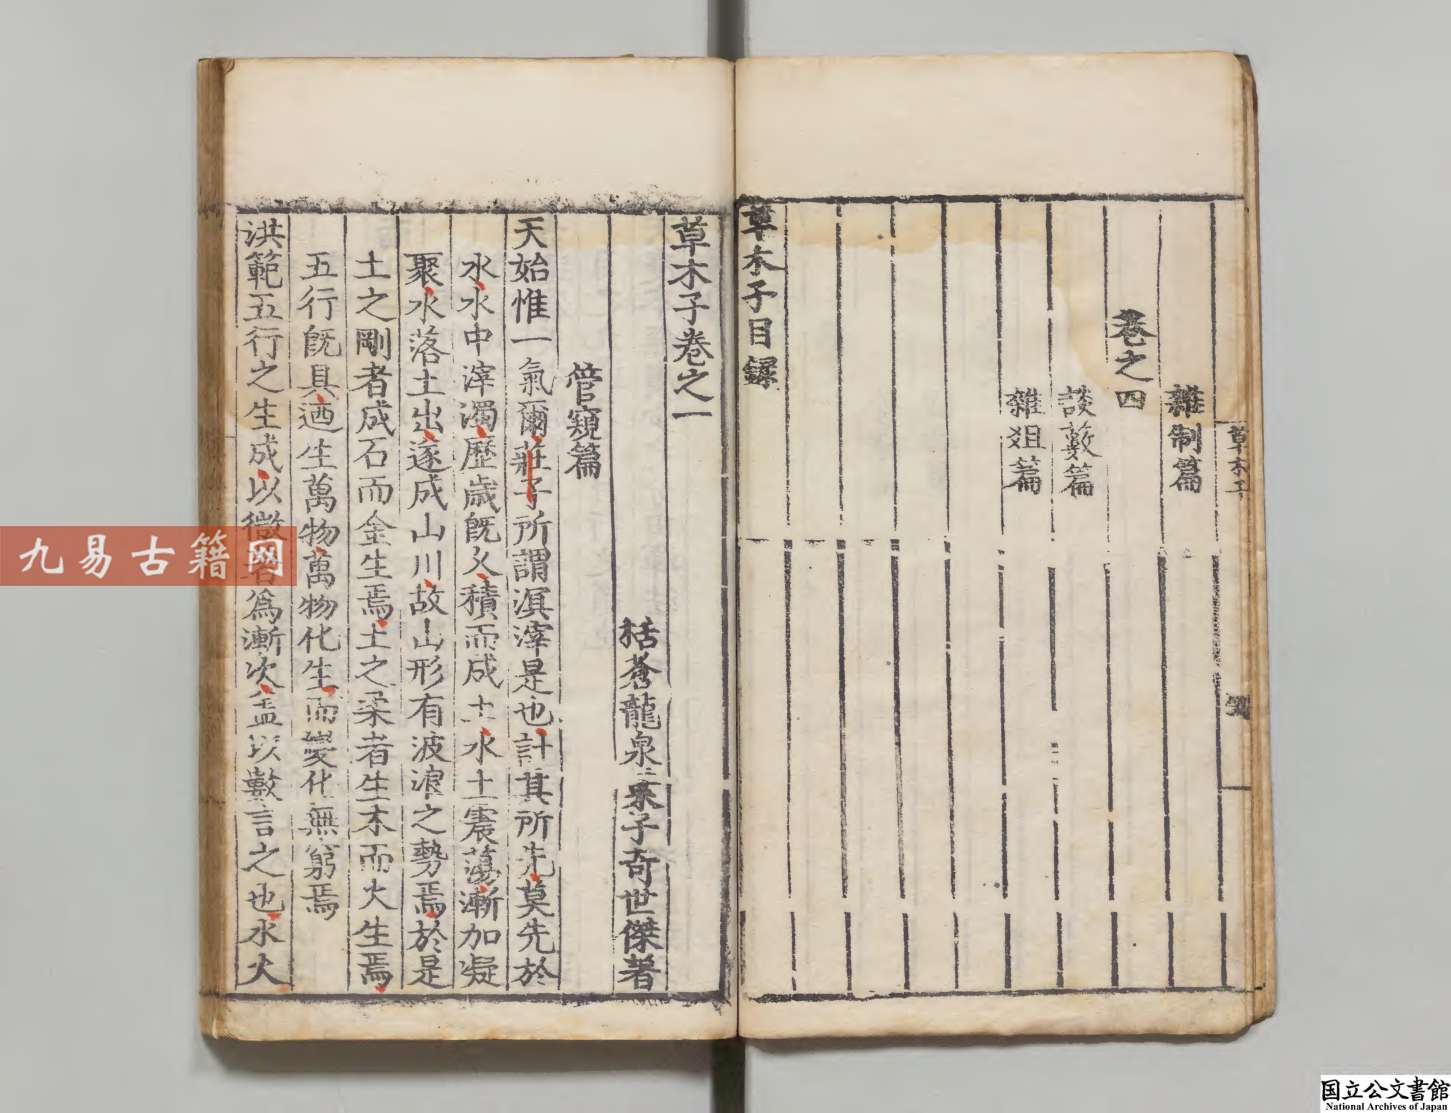 草木子
雜制篇
卷之四
談藪篇
雜俎篇
草木子目錄
草木子卷之一
括蒼龍泉葉子奇世傑著
管窺篇
天始惟一氣爾莊子所謂溟涬是也計其所先莫先於
水水中滓濁歷歲旣久積而成土水土震蕩漸加凝
聚水落土出遂成山川故山形有波浪之勢焉於是
土之剛者成石而金生焉土之柔者生木而火生焉
五行旣具迺生萬物萬物化生而變化無窮焉
洪範五行之生成以微著爲漸次盖以數言之也水火
九易古籍网
国立公文書館
National Archives of Japan